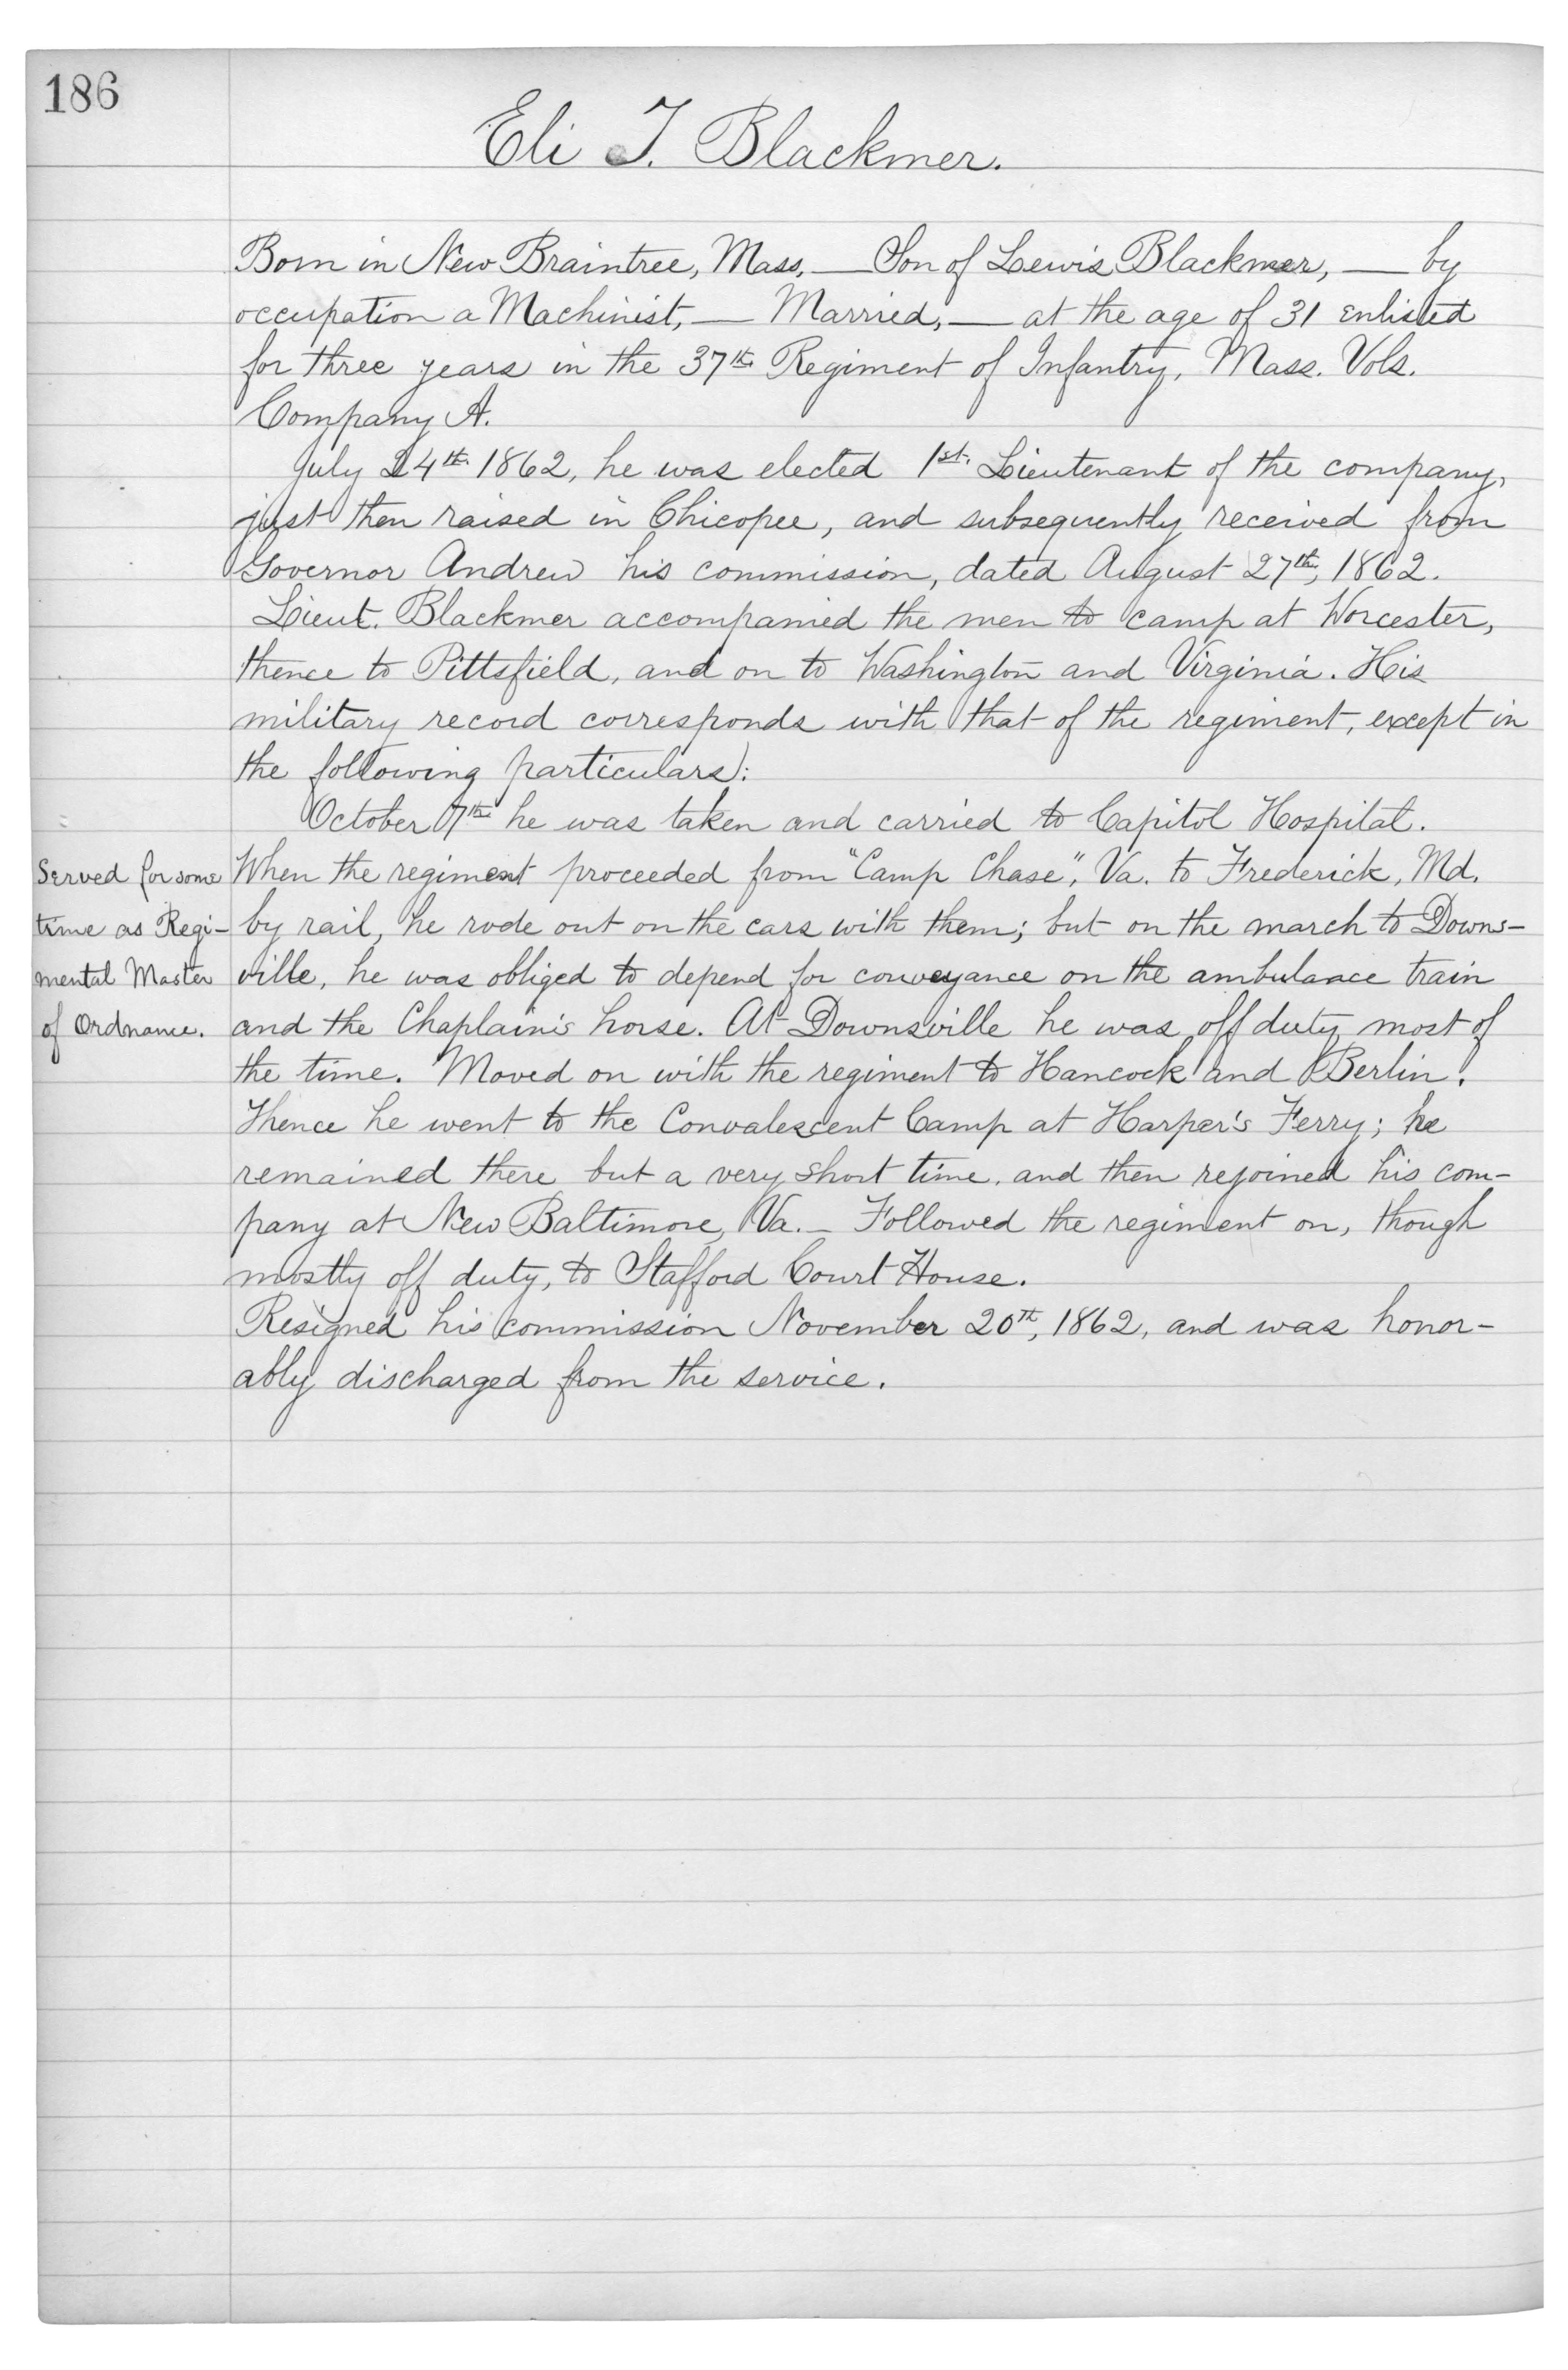 186
Eli T. Blackmer.
Born in New Braintree, Mass, — Son of Lewis Blackmer, — by
occupation a Machinist, — Married, — at the age of 31 enlisted
for three years in the 37th Regiment of Infantry, Mass. Vols.
Company A.
July 24th 1862, he was elected 1st. Lieutenant of the company,
just then raised in Chicopee, and subsequently received from
Governor Andrew his commission, dated August 27th, 1862.
Lieut. Blackmer accompanied the men to camp at Worcester,
thence to Pittsfield, and on to Washington and Virginia. His
military record corresponds with that of the regiment, except in
the following particulars:
October 7th he was taken and carried to Capitol Hospital.
When the regiment proceeded from "Camp Chase", Va. to Frederick, Md.
by rail, he rode out on the cars with them; but on the march to Downs-
ville, he was obliged to depend for conveyance on the ambulance train
and the Chaplain's horse. At Downsville he was off duty most of
the time. Moved on with the regiment to Hancock and Berlin.
Thence he went to the Convalescent Camp at Harper's Ferry; he
remained there but a very short time, and then rejoined his com-
pany at New Baltimore, Va. - Followed the regiment on, though
mostly off duty, to Stafford Court House.
Resigned his commission November 20th, 1862, and was honor-
ably discharged from the service.
Served for some
time as Regi-
mental Master
of Ordnance.